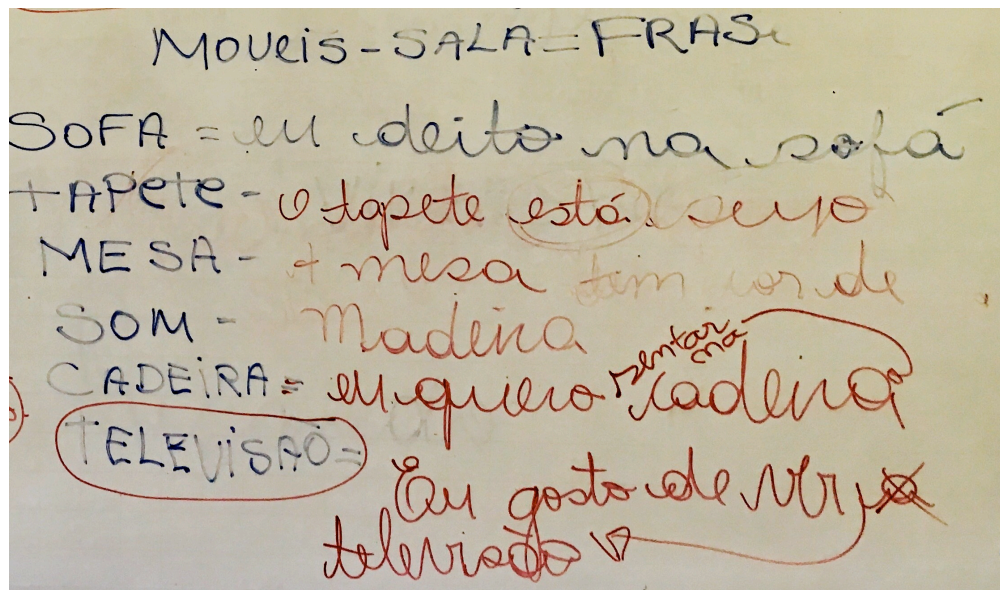 MOVEIS - SALA = FRASE
SOFA = eu deito na sofá
TAPETE - o tapete está sujo
MESA - + mesa tem cor de
SOM - Madeira
CADEIRA = eu quero sentar na cadeira
TELEVISAÕ =
Eu gosto de ver
televisão